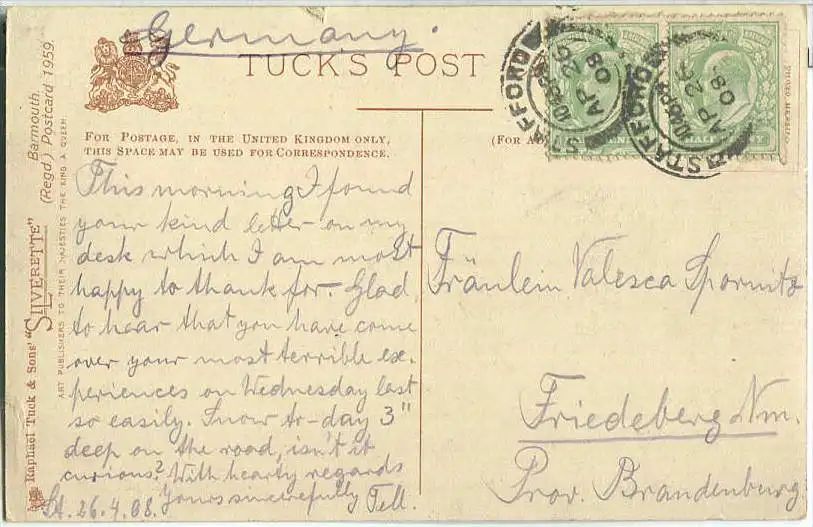 Germany.
TUCK'S POST
FOR POSTAGE, IN THE UNITED KINGDOM ONLY,
THIS SPACE MAY BE USED FOR CORRESPONDENCE.
(FOR AD
STAFFORD
AP 26
08
STAFFORD
AP 26
08
This morning I found
your kind letter on my
desk which I am most
happy to thank for. Glad
to hear that you have come
over your most terrible ex-
periences on Wednesday last
so easily. Snow to-day 3"
deep on the road, isn't it
curious? With hearty regards
Yours sincerefully Tell.
St. 26.4.08.
Fräulein Valesca Spornitz
Friedeberg Nm.
Prov. Brandenburg
Raphael Tuck & Sons' "SILVERETTE"
Barmouth.
(Regd) Postcard 1959.
ART PUBLISHERS TO THEIR MAJESTIES THE KING & QUEEN